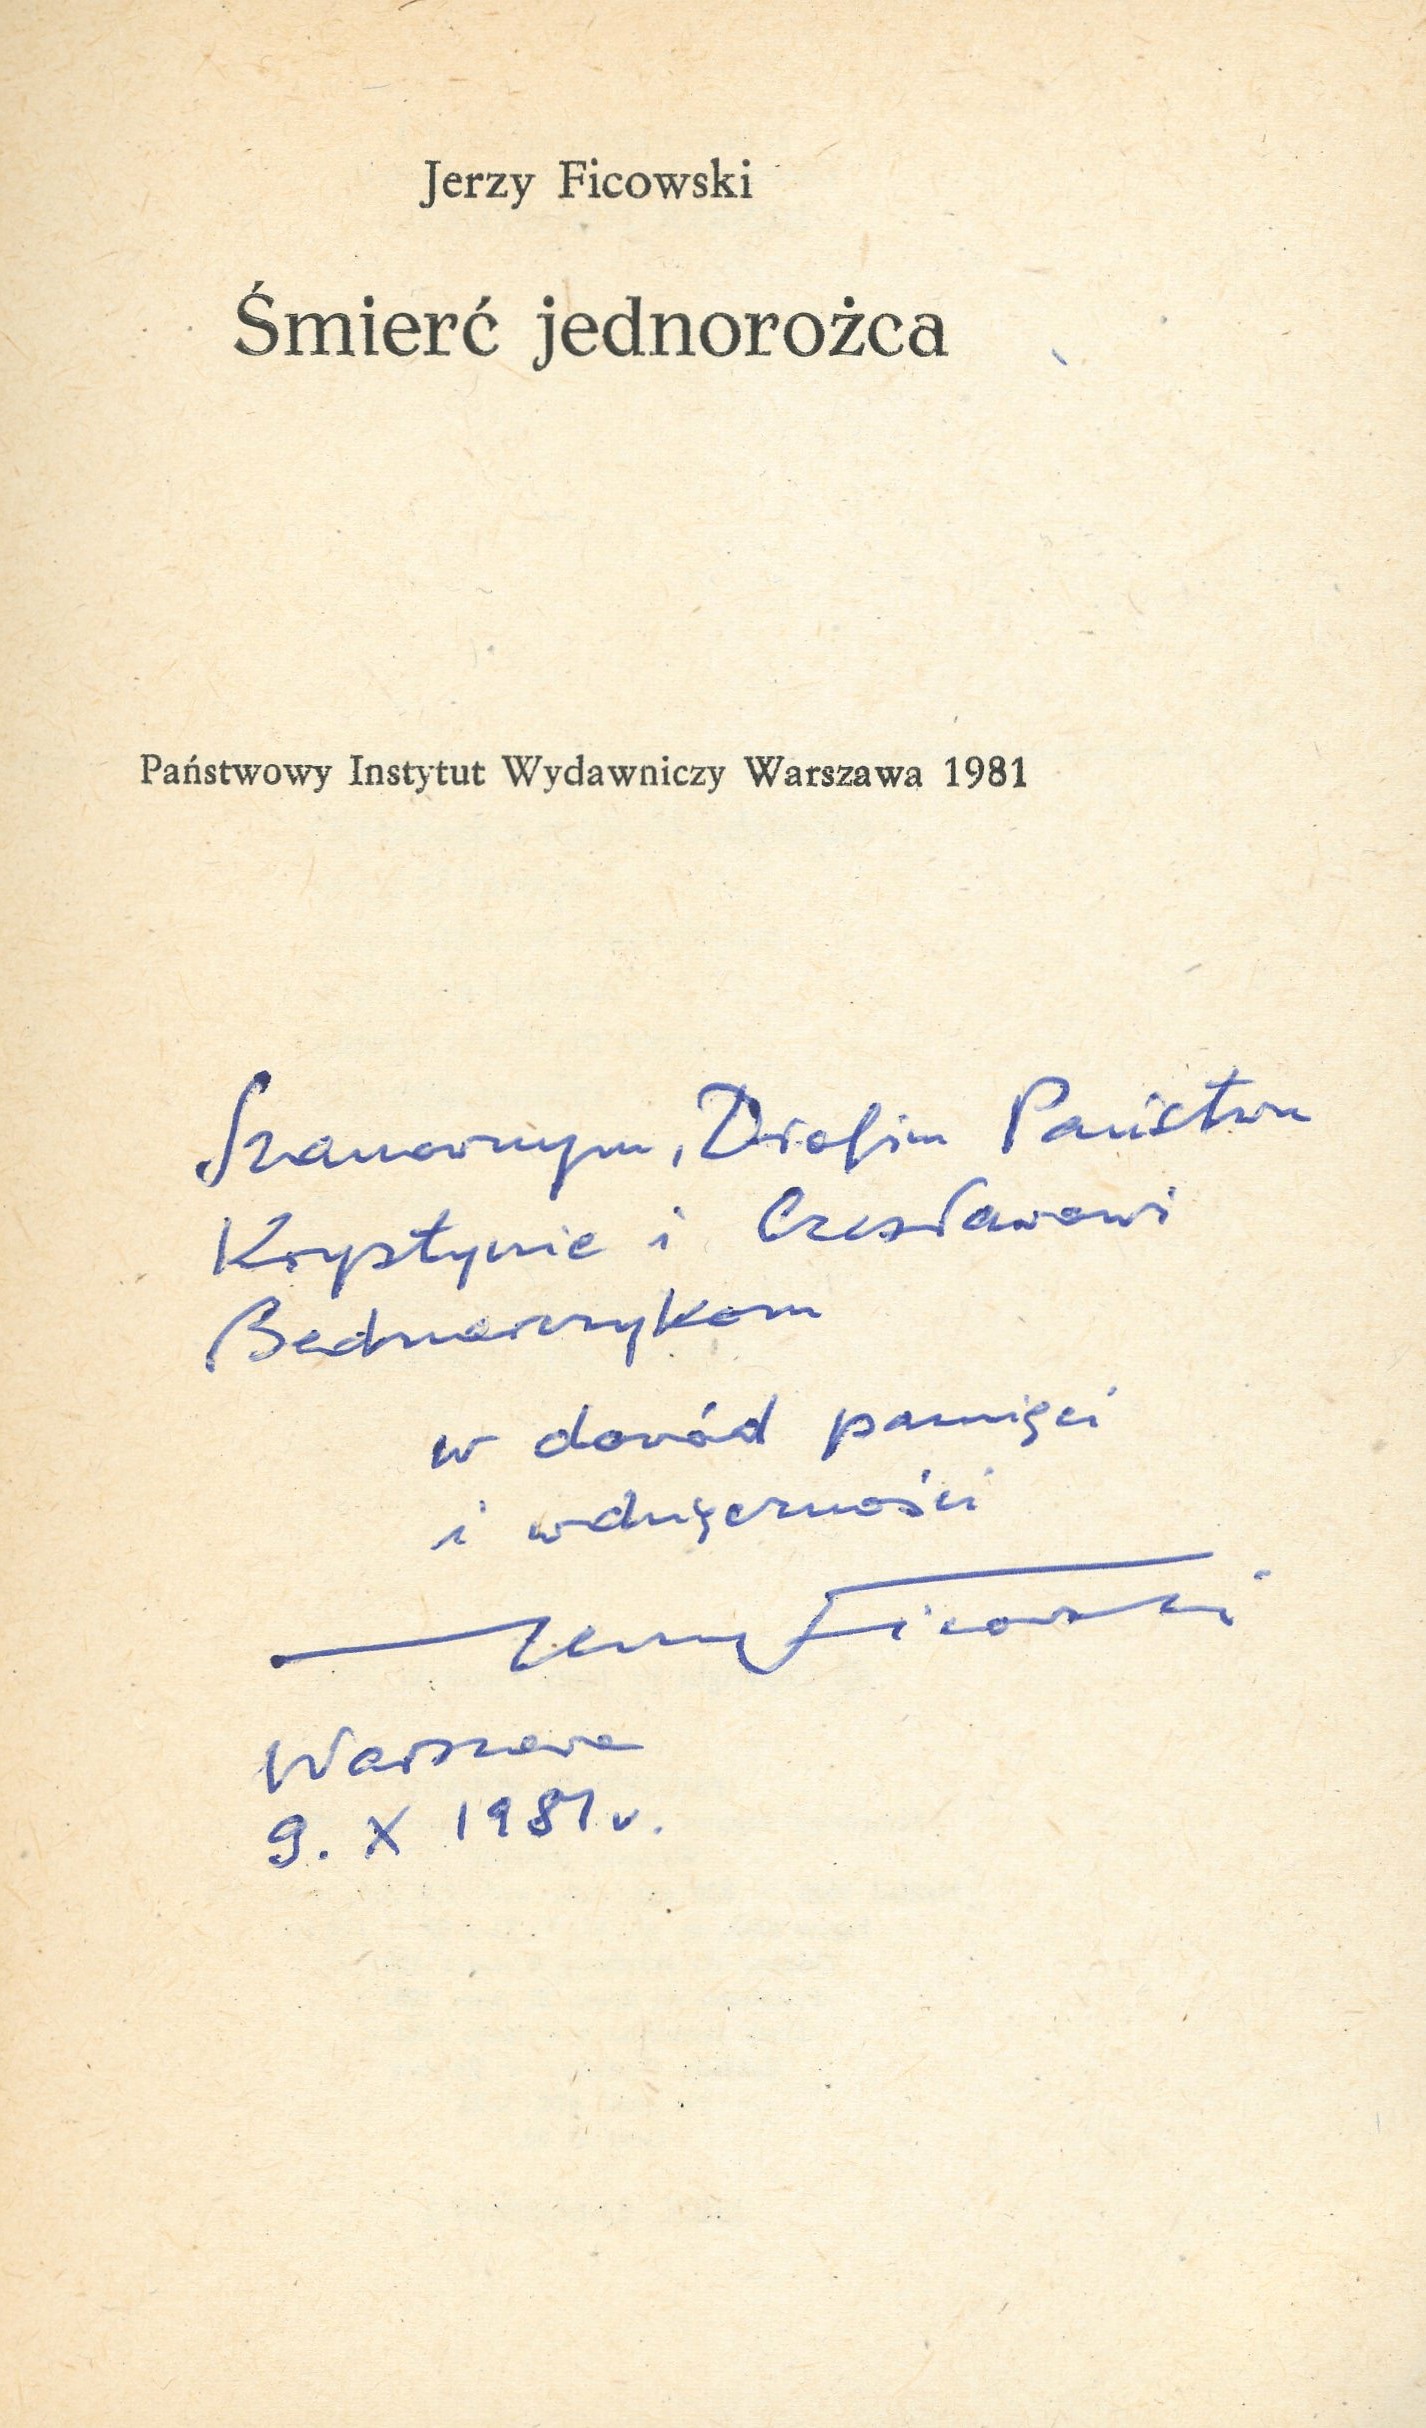 Jerzy Ficowski
Śmierć jednorożca
Państwowy Instytut Wydawniczy Warszawa 1981
Szanownym, Drogim Państwu
Krystynie i Czesławowi
Bednarczykom
w dowód pamięci
i wdzięczności
Jerzy Ficowski
Warszawa
9. X 1981 r.